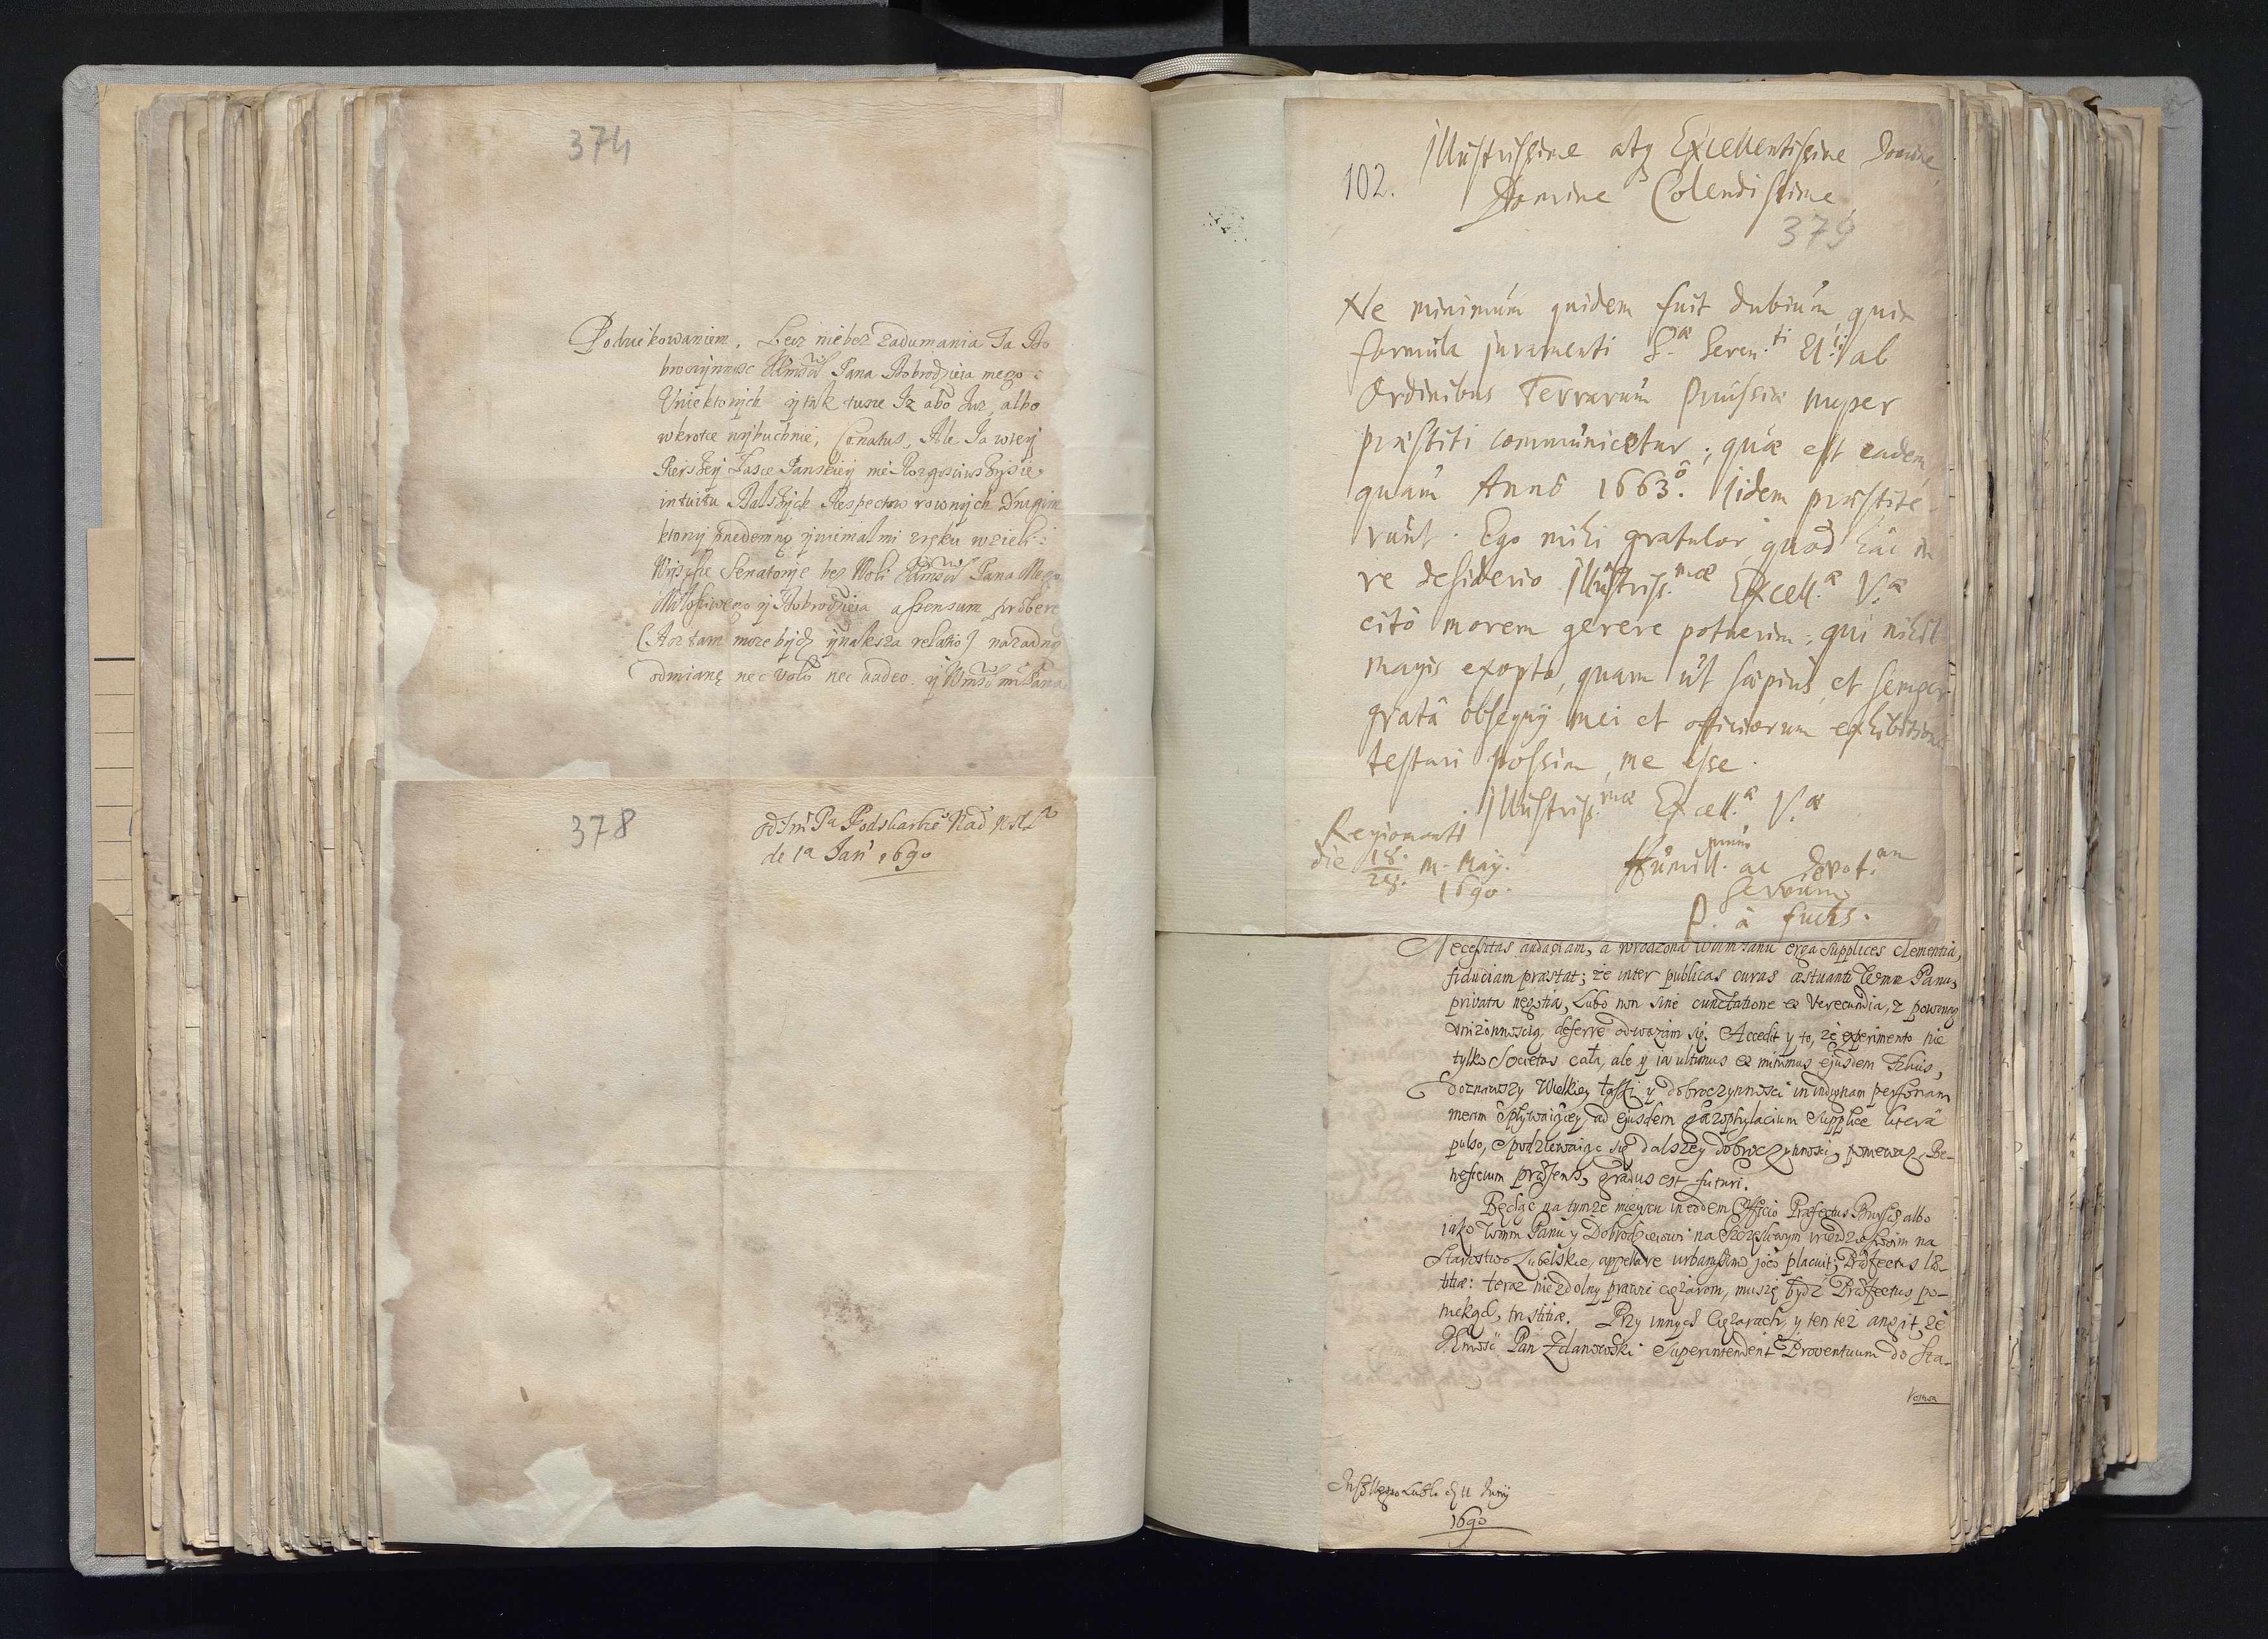 374
Poduękowaniem, Lecz niebez zadumania Ja Do
broczynnosc Pana Dobrodzieia mego
Uniektorych y tak tusze Iz abo Iuz, albo
wkrotce wybuchnie, Conatus, Ale Ja wtey
Pierszey Łasce Panskiey
intuitu Respectow rownych Drugim
ktory przedemną z ręku wzieli
Senatorye bez Woli Pana Mego
Miłosciwego y Dobrodzieia assensum prębere
(Acz tam moze bydz ynaksza relatio) nazadną
odmianę nec volo nec audeo. y Pana
378
od Podskarbie Nad
de 1a Jan 1690
102.
Illustrissime atq Excellentissime Domine,
Domine Colendissime,
379
Ne minimum quidem fuit dubium, quin
formula juramenti S.æ Seren.ti El.li ab
Ordinibus Terrarum Prussiæ nuper
præstiti communicetur; quæ est eadem,
quam Anno 1663.o Iidem præstite-
runt. Ego mihi gratulor quod hâc in
re desiderio Illustriss.mæ Excell.æ V.æ
citò morem gerere potuerim; qui nihil
magis exopto, quam ut sæpius et semper
gratâ obsequij mei et officiorum exhibitione
testari possim, me esse.
Illustriss.mæ Excell.æ V.æ
Regiomonti
die 18./28. m. Maij.
1690.
Humill.mum ac devot.um
Servum
P. à Fuchs.
Necessitas audaciam, a wrodzona Wmm Panu erga supplices clementia,
fiduciam præstat; że inter publicas curas æstuanti Wmm Panu,
privata negotia, Lubo non sine cunctatione et verecundia, z powinną
unizonnoscią, deferre odwazam się. Accedit y to, że experimento nie
tylko Societas cała, ale y ia ultimus et minimus ejusdem Filius,
doznawszy Wielkiey łaski y dobroczynnosci in indignam personam
meam spływaiącey, ad ejusdem gazophylacium supplice literâ
pulso, spodziewaiąc się dalszey dobroczynnosci, poniewaz, Be-
neficium præsens, gradus est futuri.
Będąc na tymze mieyscu in eodem Officio Præfectus Bursæ, albo
iako Wmm Panu y Dobrodzieiowi na szczęsliwym wiezdzie swoim na
Starostwo Lubelskie, appellare urbanissimo joco placuit; Præfectus læ-
titiæ: teraz niezdolny prawie cięzarom, muszę bydz Præfectus po-
niekąd, tristitiæ. Przy innych Cięzarach, y ten też angit, że
Pan Zdanowski Superintendent Proventuum do Sta-
Lubl. d. 11 Junij
1690